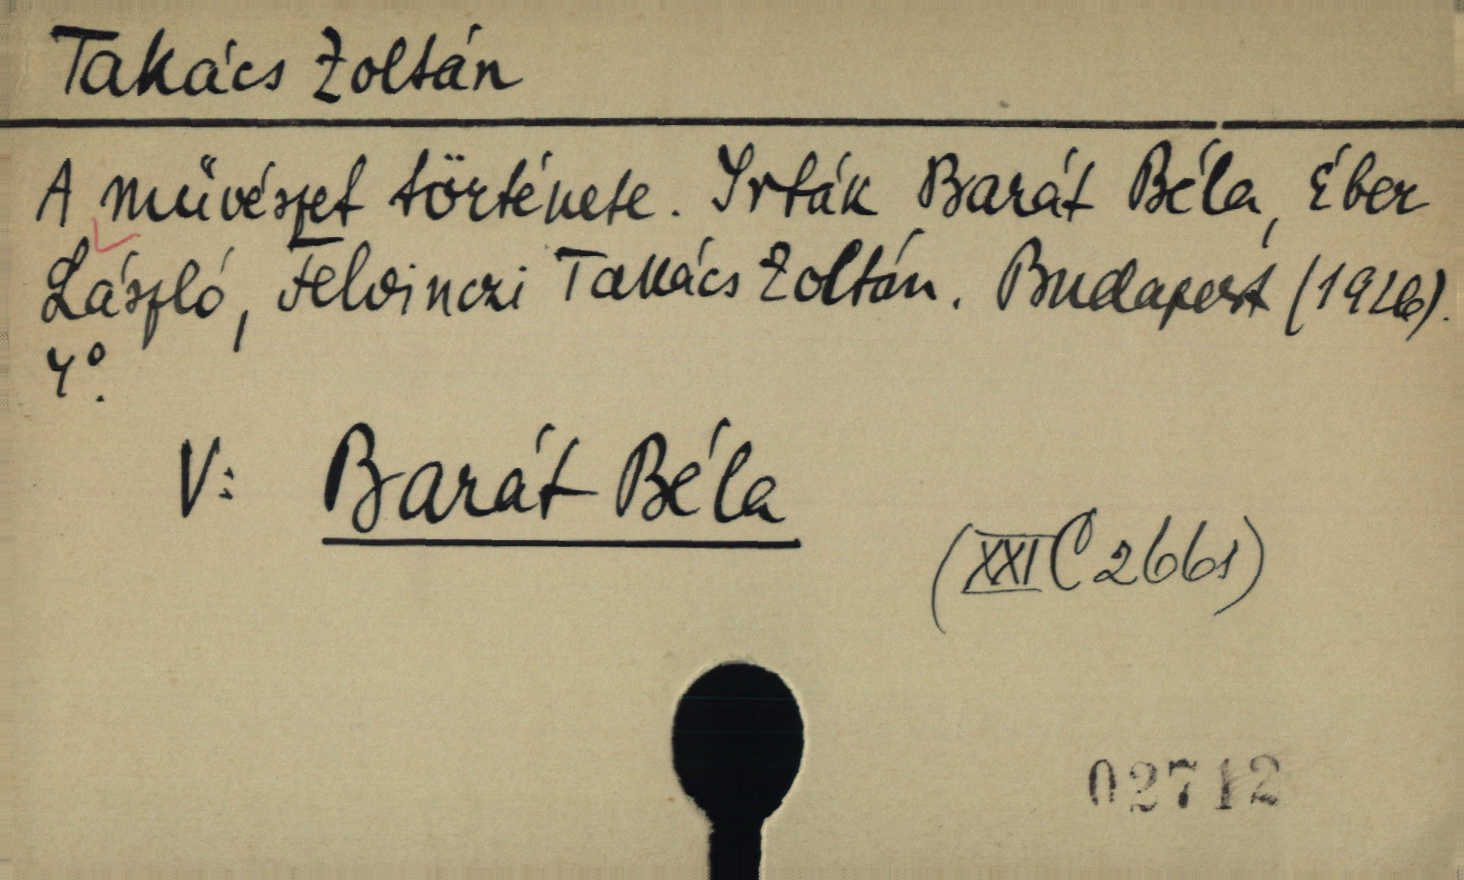 Takács Zoltán
A művészet története. Irták Barát Béla, Éber
László, Felvinczi Takács Zoltán. Budapest (1926).
4°.
V: Barát Béla
(XXI C 2661)
02712